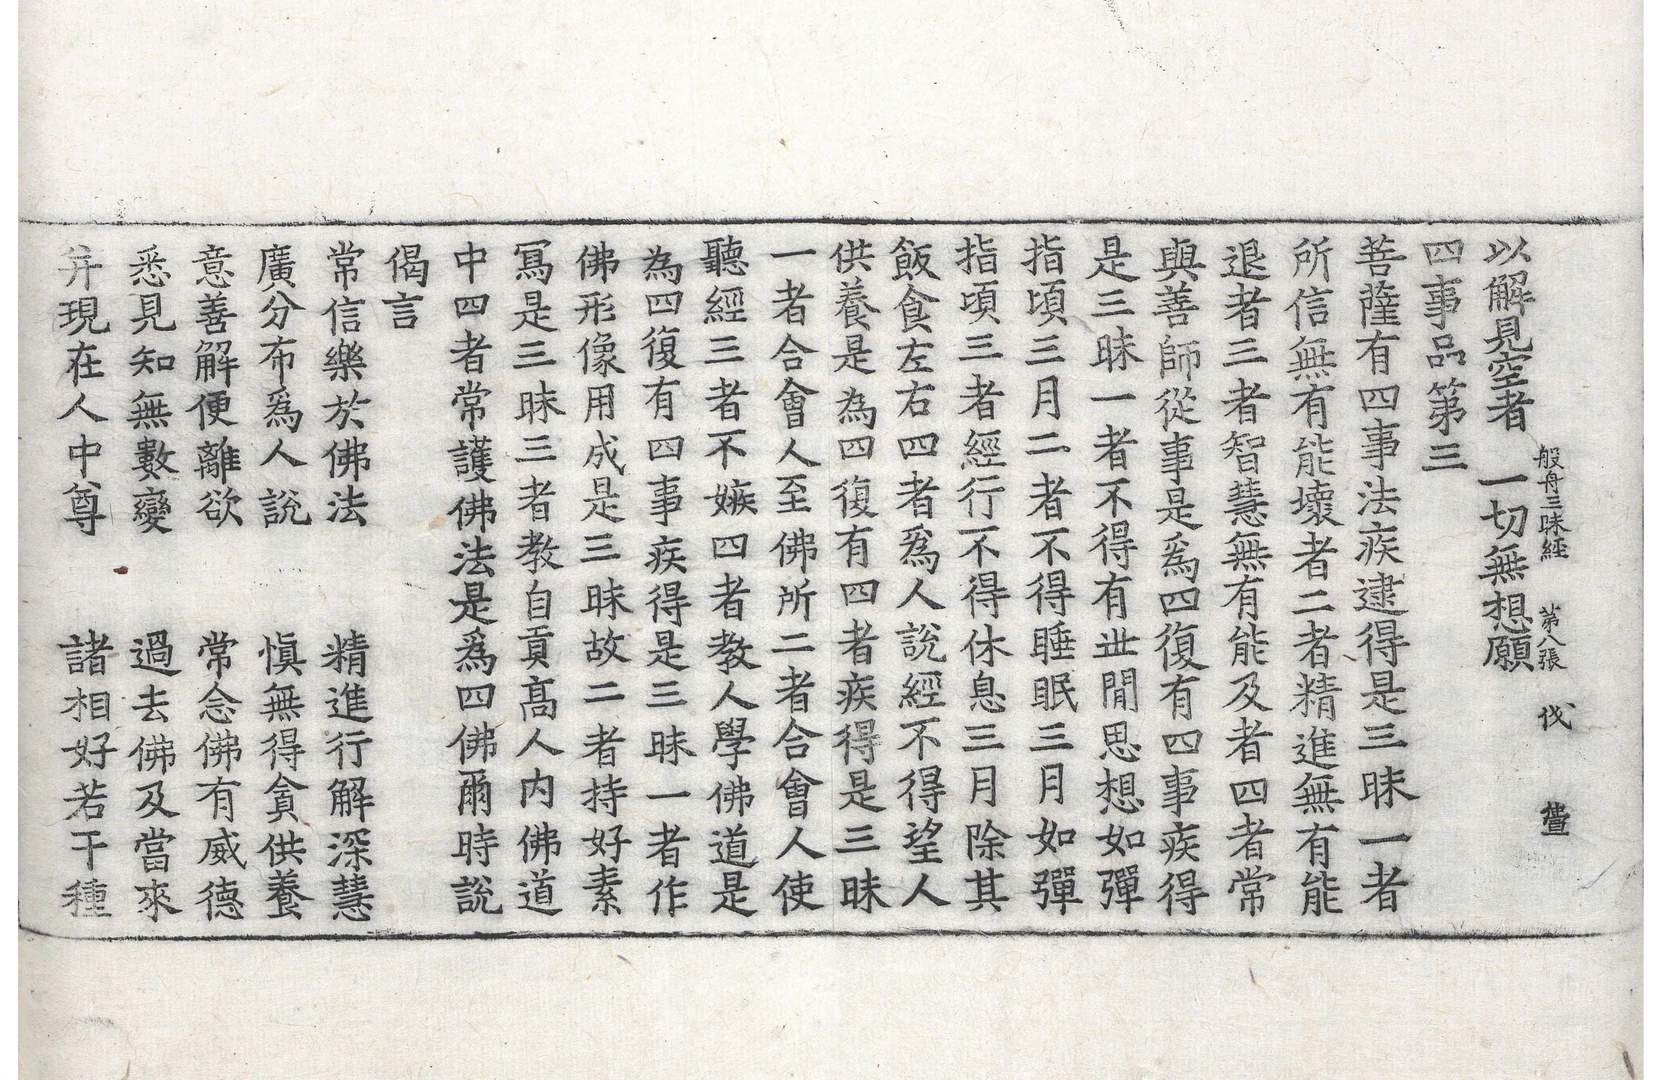 以解見空者　一切無想願
般舟三昧經　第八張　伐
四事品第三
菩薩有四事法疾逮得是三昧一者
所信無有能壞者二者精進無有能
退者三者智慧無有能及者四者常
與善師從事是爲四復有四事疾得
是三昧一者不得有世閒思想如彈
指頃三月二者不得睡眠三月如彈
指頃三者經行不得休息三月除其
飯食左右四者爲人說經不得望人
供養是為四復有四者疾得是三昧
一者合會人至佛所二者合會人使
聽經三者不嫉四者教人學佛道是
為四復有四事疾得是三昧一者作
佛形像用成是三昧故二者持好素
寫是三昧三者教自貢高人内佛道
中四者常護佛法是爲四佛爾時說
偈言
常信樂於佛法　精進行解深慧
廣分布爲人說　慎無得貪供養
意善解便離欲　常念佛有威德
悉見知無數變　過去佛及當來
并現在人中尊　諸相好若干種